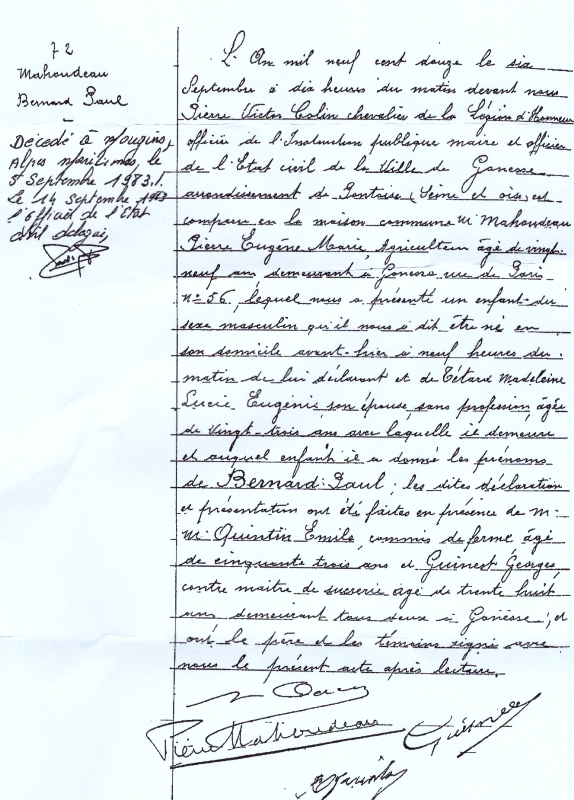 72
Mahoudeau
Bernard Paul
Décédé à Mougins,
Alpes Maritimes, le
5 Septembre 1983.
Le 14 Septembre 1983
l'officier de l'Etat
civil délégué,
L'An mil neuf cent douze le six
Septembre à dix heures du matin devant nous
Pierre Victor Colin chevalier de la Légion d'Honneur
officier de l'Instruction publique maire et officier
de l'Etat civil de la Ville de Gonesse
arrondissement de Pontoise (Seine et Oise) est
comparu en la maison commune Mr Mahoudeau
Pierre Eugène Marie, Agriculteur âgé de vingt-
neuf ans demeurant à Gonesse rue de Paris
n° 56, lequel nous a présenté un enfant du
sexe masculin qu'il nous a dit être né en
son domicile avant-hier à neuf heures du
matin de lui déclarant et de Tétard Madeleine
Lucie Eugénie son épouse, sans profession, âgée
de vingt-trois ans avec laquelle il demeure
et auquel enfant il a donné les prénoms
de Bernard Paul; les dites déclaration
et présentation ont été faites en présence de M.
M. Quentin Emile, commis de ferme âgé
de cinquante trois ans et Guinest Georges,
contre maitre de sucrerie âgé de trente huit
ans demeurant tous deux à Gonesse; et
ont le père et les témoins signé avec
nous le présent acte après lecture.
Pierre Mahoudeau